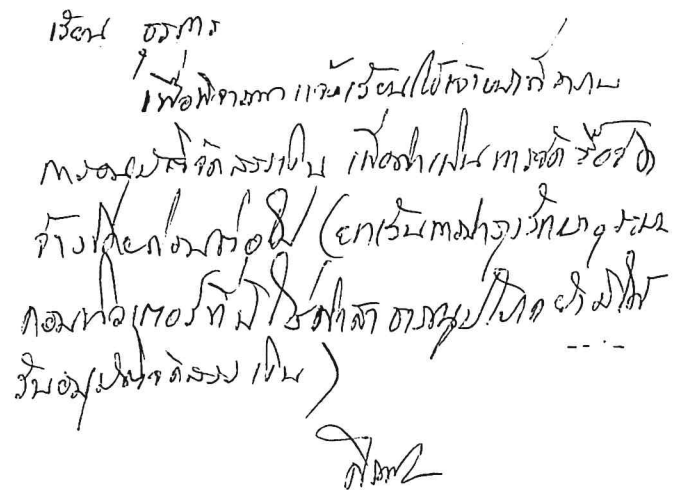 เรียน ธุรการ
เพื่อพิจารณาแจ้งเวียนให้เจ้าหน้าที่ทราบ
การอนุมัติจัดสรรเงิน เพื่อดำเนินการจัดซื้อจัด
จ้างโดยก่อนต่อไป (ยกเว้นการบำรุงรักษาระบบ
คอมพิวเตอร์ที่มิใช่ค่าสาธารณูปโภค ยังมิได้
รับอนุมัติจัดสรรเงิน)